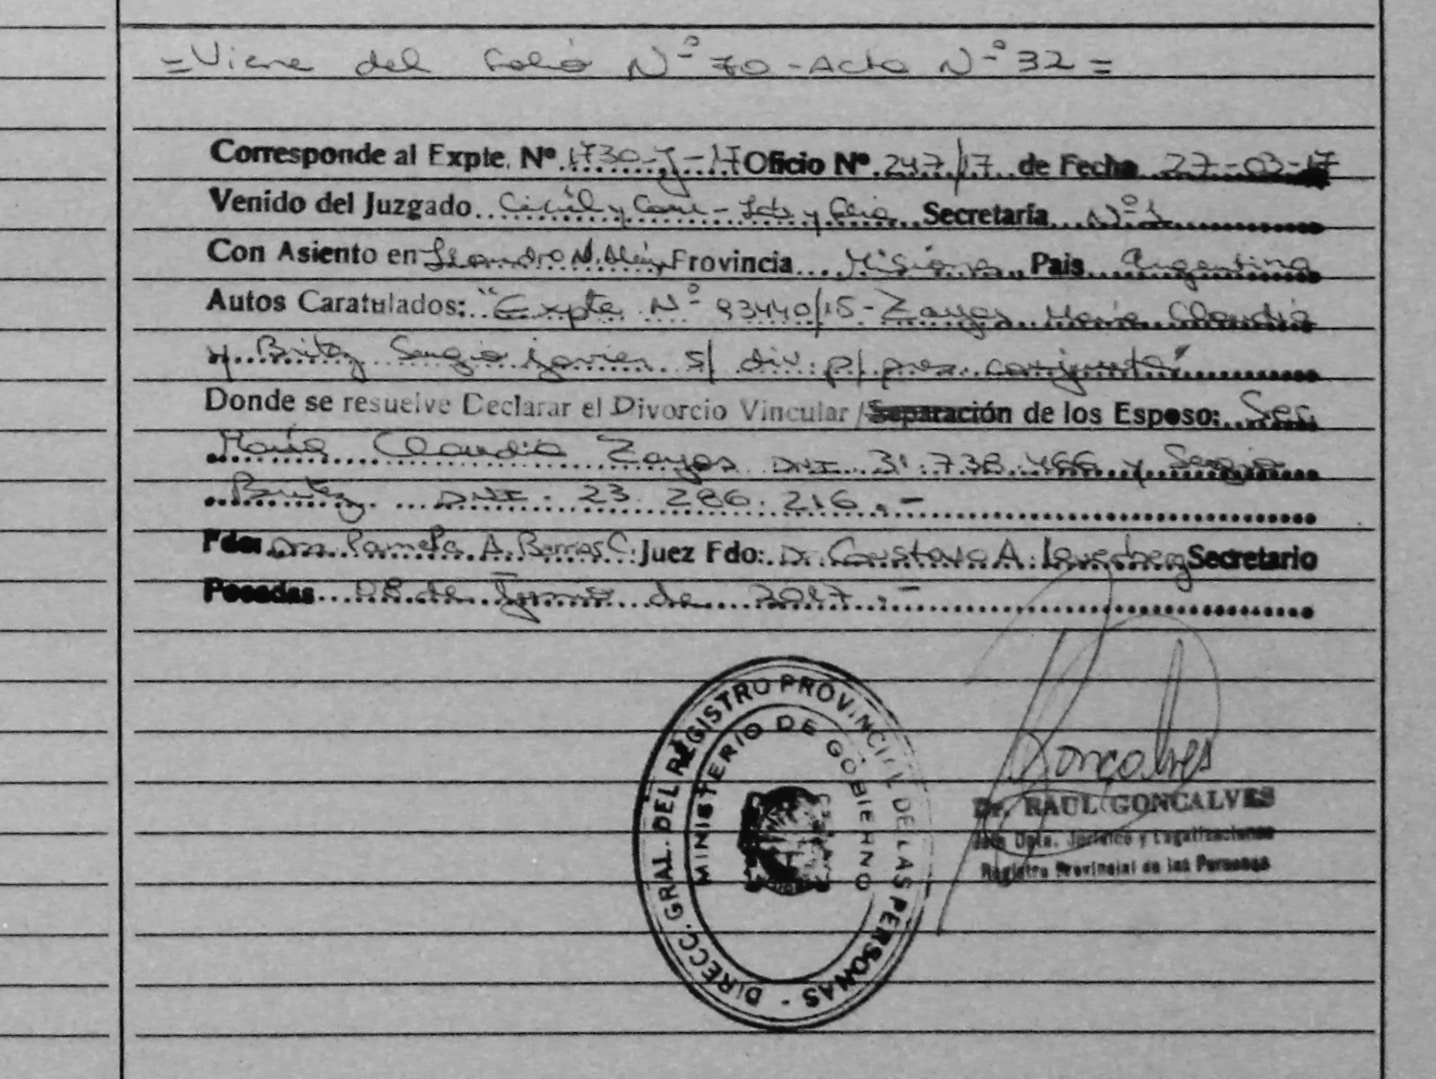 =Viene del Folio Nº 70 - Acta Nº 32=
Corresponde al Expte. Nº 1730-J-17 Oficio Nº 247/17 de Fecha 27-03-17
Venido del Juzgado Civil y Com - Lab y Flia Secretaría Nº 1
Con Asiento en Leandro N. Alem Provincia Misiones País Argentina
Autos Caratulados: "Expte Nº 93440/15 - Zayas María Claudia
y Britez Sergio Javier s/ div. p/ pres. conjunta"
Donde se resuelve Declarar el Divorcio Vincular / Separación de los Esposo: Ses
María Claudia Zayas DNI 31.738.466 y Sergio
Britez DNI. 23.286.216.-
Fdo: Dra Pamela A. Barrios C. Juez Fdo: Dr. Gustavo A. Secretario
Posadas 08 de Junio de 2017.-
DIRECC. GRAL. DEL REGISTRO PROVINCIAL DE LAS PERSONAS -
MINISTERIO DE GOBIERNO
Gonçalves
Dr. RAUL GONCALVES
Jefe Dpto. Jurídico y Legalizaciones
Registro Provincial de las Personas